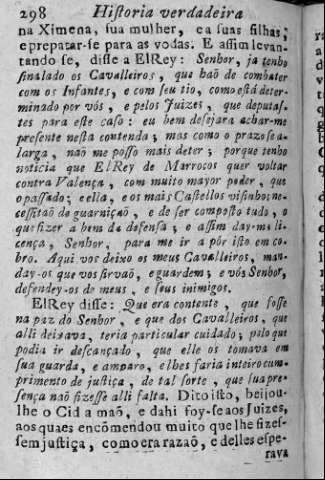 298 Historia verdadeira
na Ximena, sua mulher, ea suas filhas,
e prepatar-se para as vodas. E assim levan-
tando se, disse a ElRey: Senhor, ja tenho
sinalado os Cavalleiros, que haõ de combater
com os Infantes, e com seu tio, como está deter-
minado por vós, e pelos Juizes, que deputas-
tes para este caso: eu bem desejara achar-me
presente nesta contenda; mas como o prazo se a-
larga, naõ me posso mais deter; porque tenho
noticia que ElRey de Marrocos quer voltar
contra Valença, com muito mayor poder, que
o passado; e ella, e os mais Castellos visinhos ne-
cessitaõ de guarniçaõ, e de ser composto tudo, o
que fizer a bem da defensa; e assim day-me li-
cença, Senhor, para me ir a pôr isto em co-
bro. Aqui vos deixo os meus Cavalleiros, man-
day-os que vos sirvaõ, e guardem; e vós Senhor,
defendey-os de meus, e seus inimigos.
ElRey disse: Que era contente, que fosse
na paz do Senhor, e que dos Cavalleiros, que
alli deixava, teria particular cuidado; pelo que
podia ir descançado, que elle os tomava em
sua guarda, e amparo, e lhes faria inteiro cum-
primento de justiça, de tal sorte, que sua pre-
sença naõ fizesse alli falta. Dito isto, beijou-
lhe o Cid a maõ, e dahi foy-se aos Juizes,
aos quaes encõmendou muito que lhe fizes-
sem justiça, como era razaõ, e delles espe-
rava